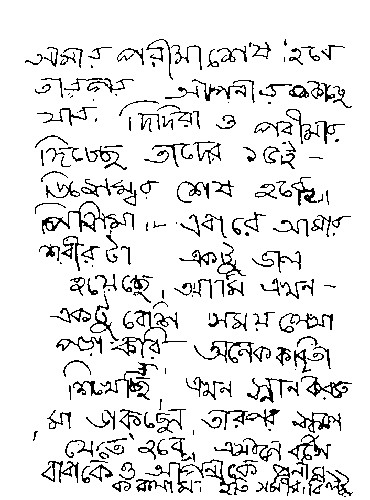 আমার পরীক্ষা শেষ হলে
তারপর আপনার কাছে
যাব। দিদিরা ও পরীক্ষার
দিচ্ছে তাদের ১৫ই -
ডিসেম্বর শেষ হবে।
পিসিমা - এবারে আমার
শরীর টা একটু ভাল
হয়েছে, আমি এখন -
একটু বেশি সময় লেখা
পড়া করি - অনেক কবিতা
শিখেছি, এখন স্নান করতে
মা ডাকছেন, তারপর
খেতে হবে, এখানে বসে
বাবাকে ও আপনাকে প্রনাম
করলাম। ইতি সমীর